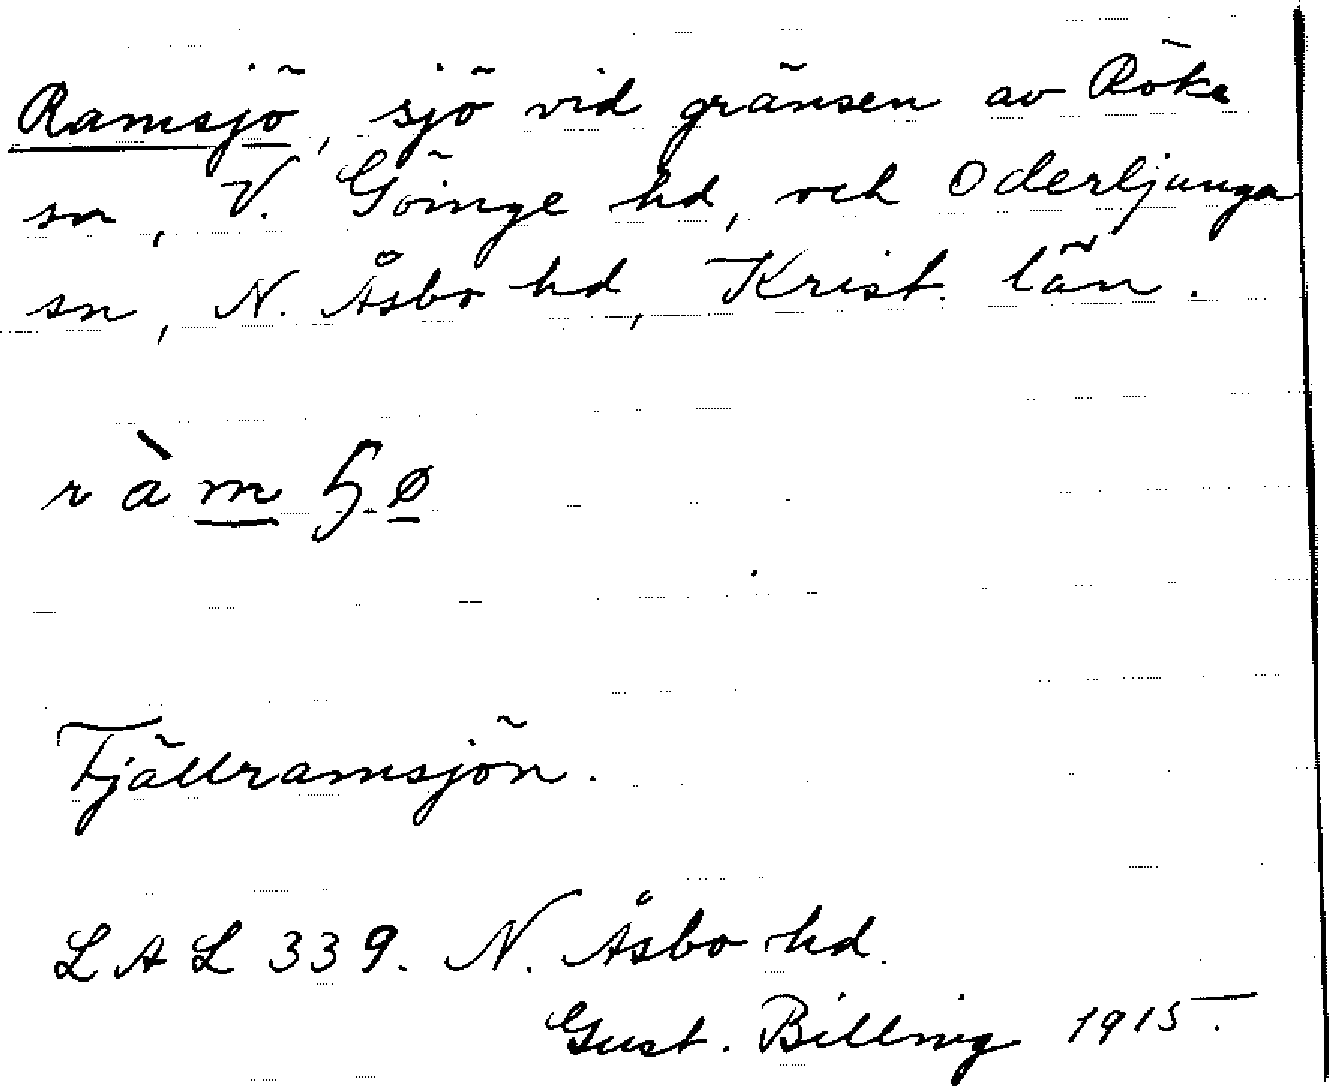 Ramsjö, sjö vid gränsen av Röke
sn, V. Göinge hd, och Oderljunga
sn, N. Åsbo hd, Krist. län.
ràm
Fjällramsjön.
LAL 339. N. Åsbo hd.
Gust. Billing 1915.